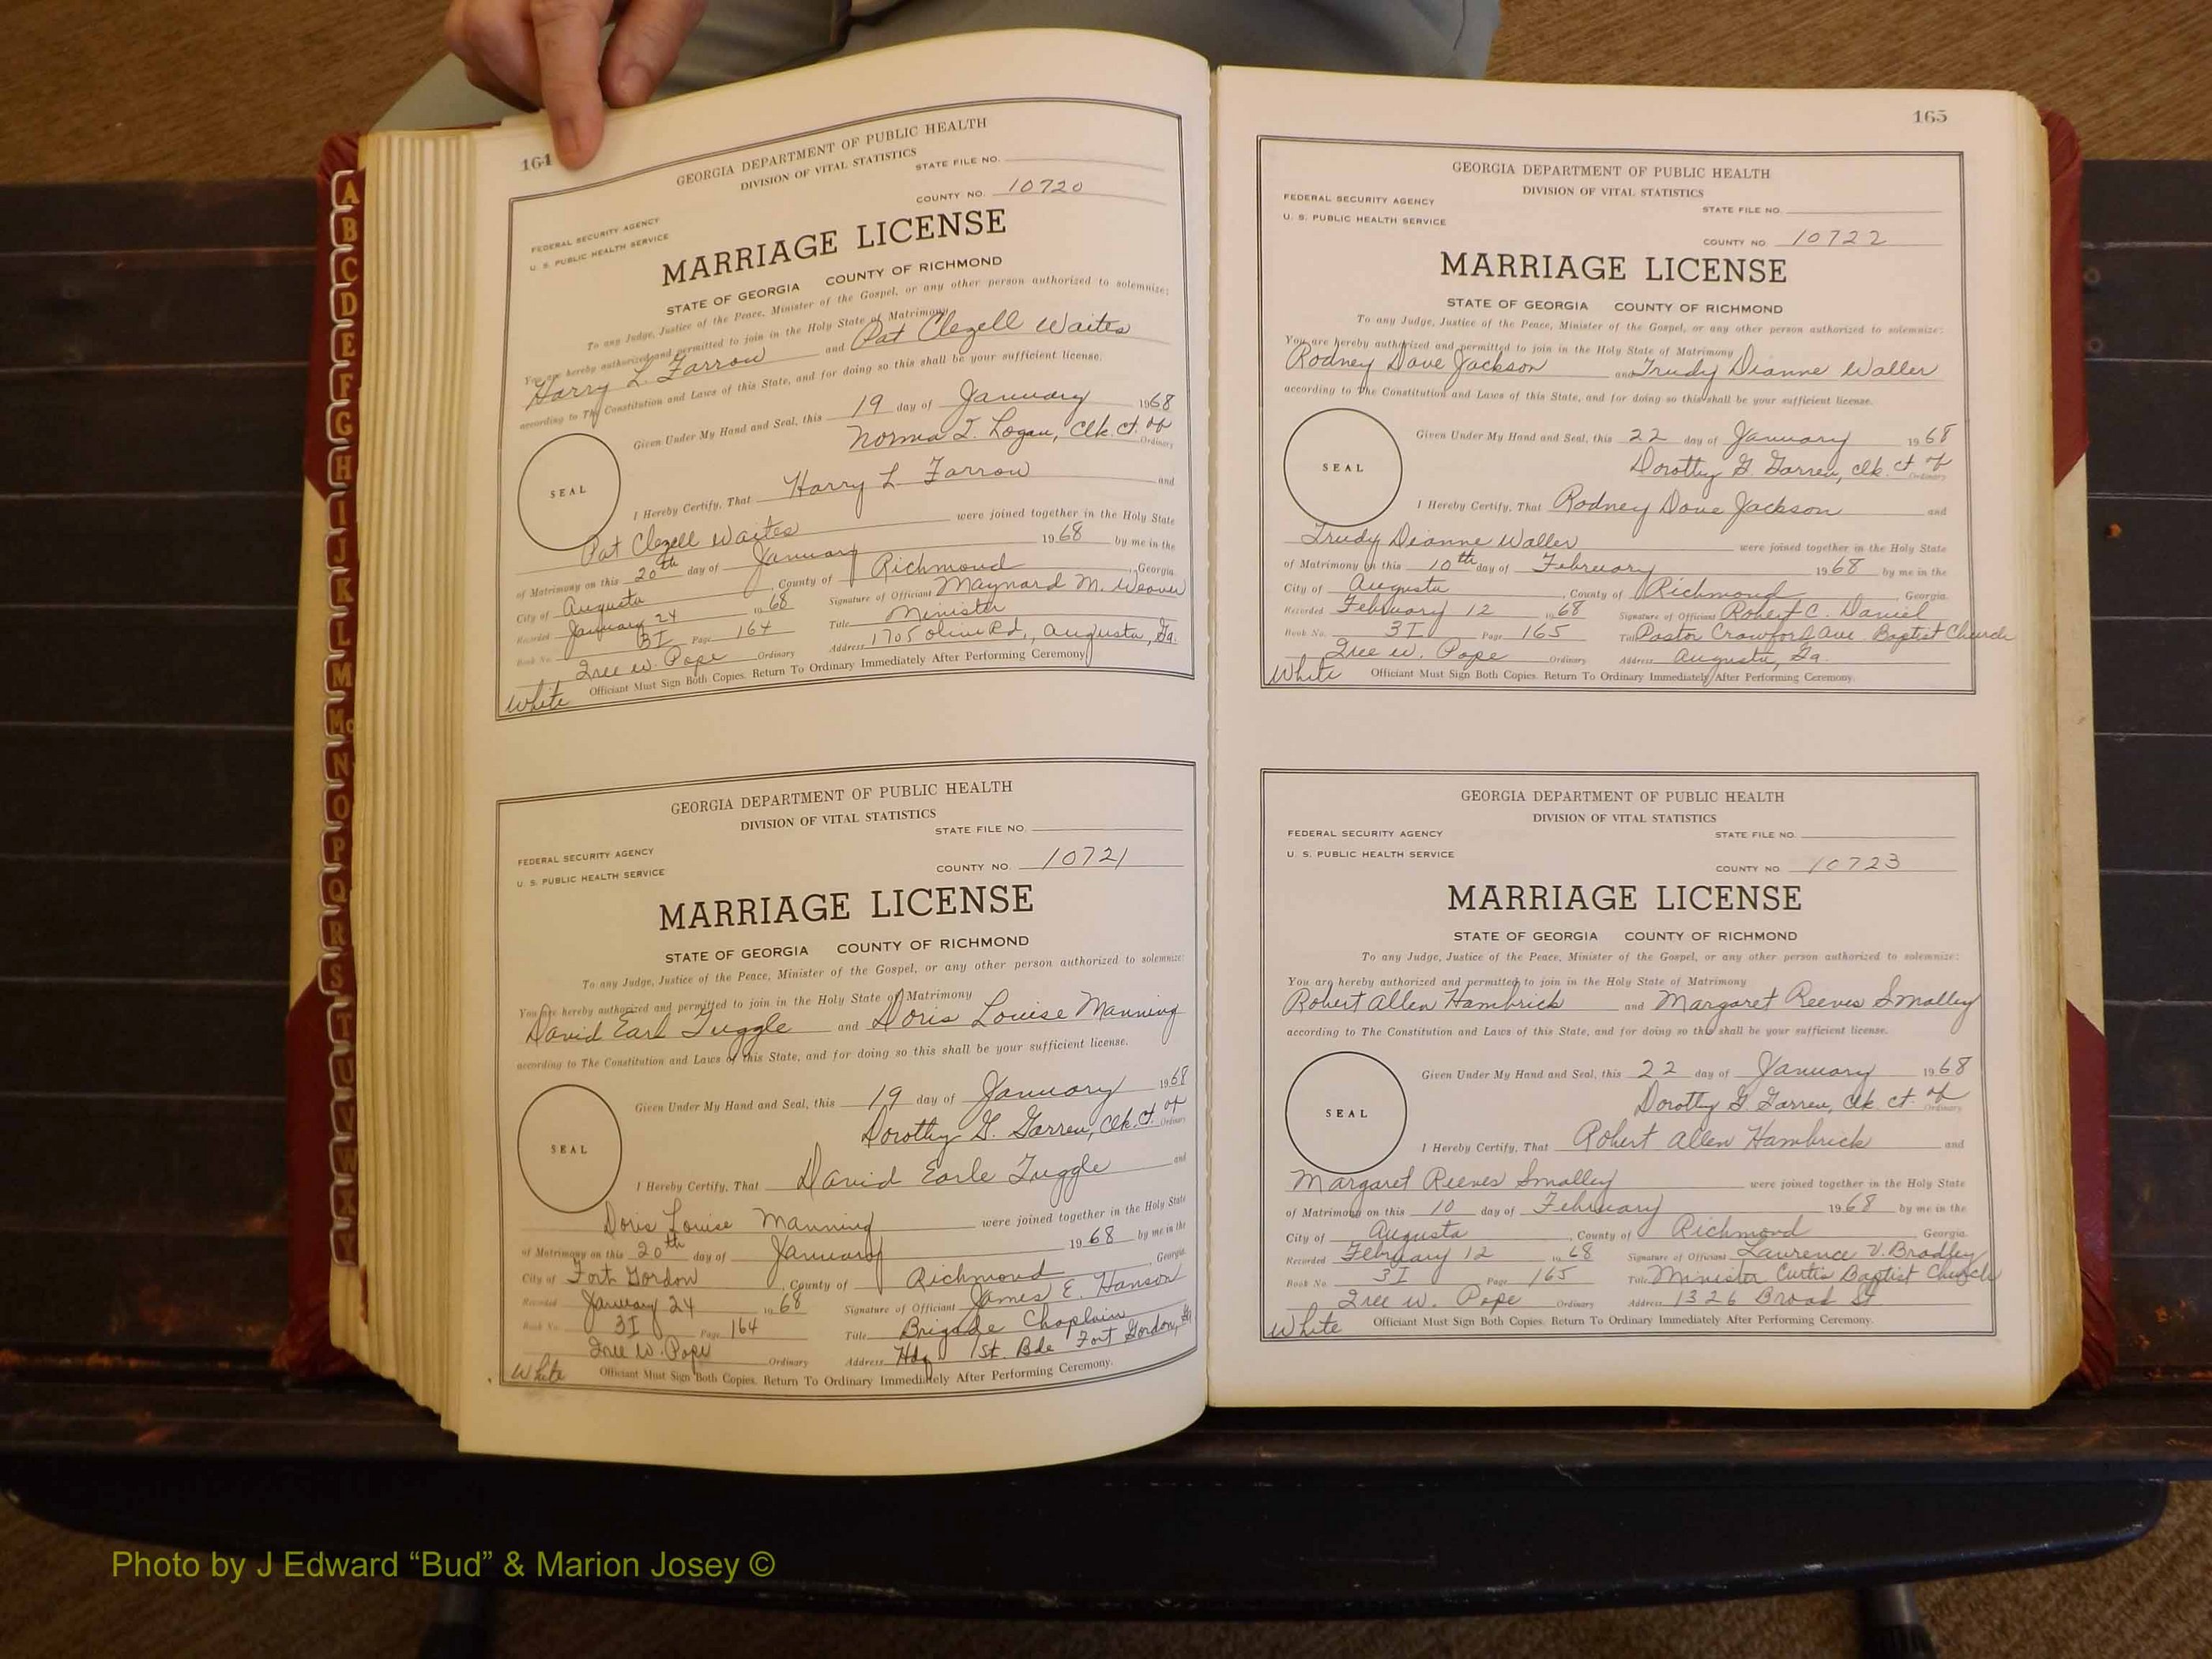 164
GEORGIA DEPARTMENT OF PUBLIC HEALTH
DIVISION OF VITAL STATISTICS
STATE FILE NO.
COUNTY NO. 10720
FEDERAL SECURITY AGENCY
U. S. PUBLIC HEALTH SERVICE
MARRIAGE LICENSE
STATE OF GEORGIA COUNTY OF RICHMOND
To any Judge, Justice of the Peace, Minister of the Gospel, or any other person authorized to solemnize:
You are hereby authorized and permitted to join in the Holy State of Matrimony
Harry L. Farrow and Pat Clezell Waites
according to The Constitution and Laws of this State, and for doing so this shall be your sufficient license.
Given Under My Hand and Seal, this 19 day of January 1968
Norma T. Logan, Clk. ct. of Ordinary
SEAL
I Hereby Certify, That Harry L. Farrow and
Pat Clezell Waites were joined together in the Holy State
of Matrimony on this 20th day of January 1968 by me in the
City of Augusta, County of Richmond, Georgia
Recorded January 24 1968 Signature of Officiant Maynard M. Weaver
Book No. 3I Page 164 Title Minister
Iree W. Pope Ordinary Address 1705 Olive Rd., Augusta, Ga.
White Officiant Must Sign Both Copies. Return To Ordinary Immediately After Performing Ceremony.
GEORGIA DEPARTMENT OF PUBLIC HEALTH
DIVISION OF VITAL STATISTICS
STATE FILE NO.
FEDERAL SECURITY AGENCY
COUNTY NO. 10721
U. S. PUBLIC HEALTH SERVICE
MARRIAGE LICENSE
STATE OF GEORGIA COUNTY OF RICHMOND
To any Judge, Justice of the Peace, Minister of the Gospel, or any other person authorized to solemnize:
You are hereby authorized and permitted to join in the Holy State of Matrimony
David Earl Tuggle and Doris Louise Manning
according to The Constitution and Laws of this State, and for doing so this shall be your sufficient license.
Given Under My Hand and Seal, this 19 day of January 1968
Dorothy G. Garren, Clk. ct. of Ordinary
SEAL
I Hereby Certify, That David Earle Tuggle and
Doris Louise Manning were joined together in the Holy State
of Matrimony on this 20th day of January 1968 by me in the
City of Fort Gordon, County of Richmond, Georgia
Recorded January 24 1968 Signature of Officiant James E. Hanson
Book No. 3I Page 164 Title Brigade Chaplain
Iree W. Pope Ordinary Address Hdq 1st. Bde Fort Gordon, Ga
White Officiant Must Sign Both Copies. Return To Ordinary Immediately After Performing Ceremony.
165
GEORGIA DEPARTMENT OF PUBLIC HEALTH
DIVISION OF VITAL STATISTICS
FEDERAL SECURITY AGENCY
STATE FILE NO.
U. S. PUBLIC HEALTH SERVICE
COUNTY NO. 10722
MARRIAGE LICENSE
STATE OF GEORGIA COUNTY OF RICHMOND
To any Judge, Justice of the Peace, Minister of the Gospel, or any other person authorized to solemnize:
You are hereby authorized and permitted to join in the Holy State of Matrimony
Rodney Dove Jackson and Trudy Dianne Waller
according to The Constitution and Laws of this State, and for doing so this shall be your sufficient license.
Given Under My Hand and Seal, this 22 day of January 1968
Dorothy G. Garren, Clk. ct. of Ordinary
SEAL
I Hereby Certify, That Rodney Dove Jackson and
Trudy Dianne Waller were joined together in the Holy State
of Matrimony on this 10th day of February 1968 by me in the
City of Augusta, County of Richmond, Georgia.
Recorded February 12 1968 Signature of Officiant Robert C. Daniel
Book No. 3I Page 165 Title Pastor Crawford Ave. Baptist Church
Iree W. Pope Ordinary Address Augusta, Ga.
White Officiant Must Sign Both Copies. Return To Ordinary Immediately After Performing Ceremony.
GEORGIA DEPARTMENT OF PUBLIC HEALTH
DIVISION OF VITAL STATISTICS
FEDERAL SECURITY AGENCY
STATE FILE NO.
U. S. PUBLIC HEALTH SERVICE
COUNTY NO. 10723
MARRIAGE LICENSE
STATE OF GEORGIA COUNTY OF RICHMOND
To any Judge, Justice of the Peace, Minister of the Gospel, or any other person authorized to solemnize:
You are hereby authorized and permitted to join in the Holy State of Matrimony
Robert Allen Hambrick and Margaret Reeves Smalley
according to The Constitution and Laws of this State, and for doing so this shall be your sufficient license.
Given Under My Hand and Seal, this 22 day of January 1968
Dorothy G. Garren, Clk. ct. of Ordinary
SEAL
I Hereby Certify, That Robert Allen Hambrick and
Margaret Reeves Smalley were joined together in the Holy State
of Matrimony on this 10 day of February 1968 by me in the
City of Augusta, County of Richmond Georgia
Recorded February 12 1968 Signature of Officiant Lawrence V. Bradley
Book No. 3I Page 165 Title Minister Curtis Baptist Church
Iree W. Pope Ordinary Address 1326 Broad St
White Officiant Must Sign Both Copies. Return To Ordinary Immediately After Performing Ceremony.
A
B
C
D
E
F
G
H
I
J
K
L
M
Mc
N
O
P
Q
R
S
T
U
V
W
X
Y
Photo by J Edward “Bud” & Marion Josey ©